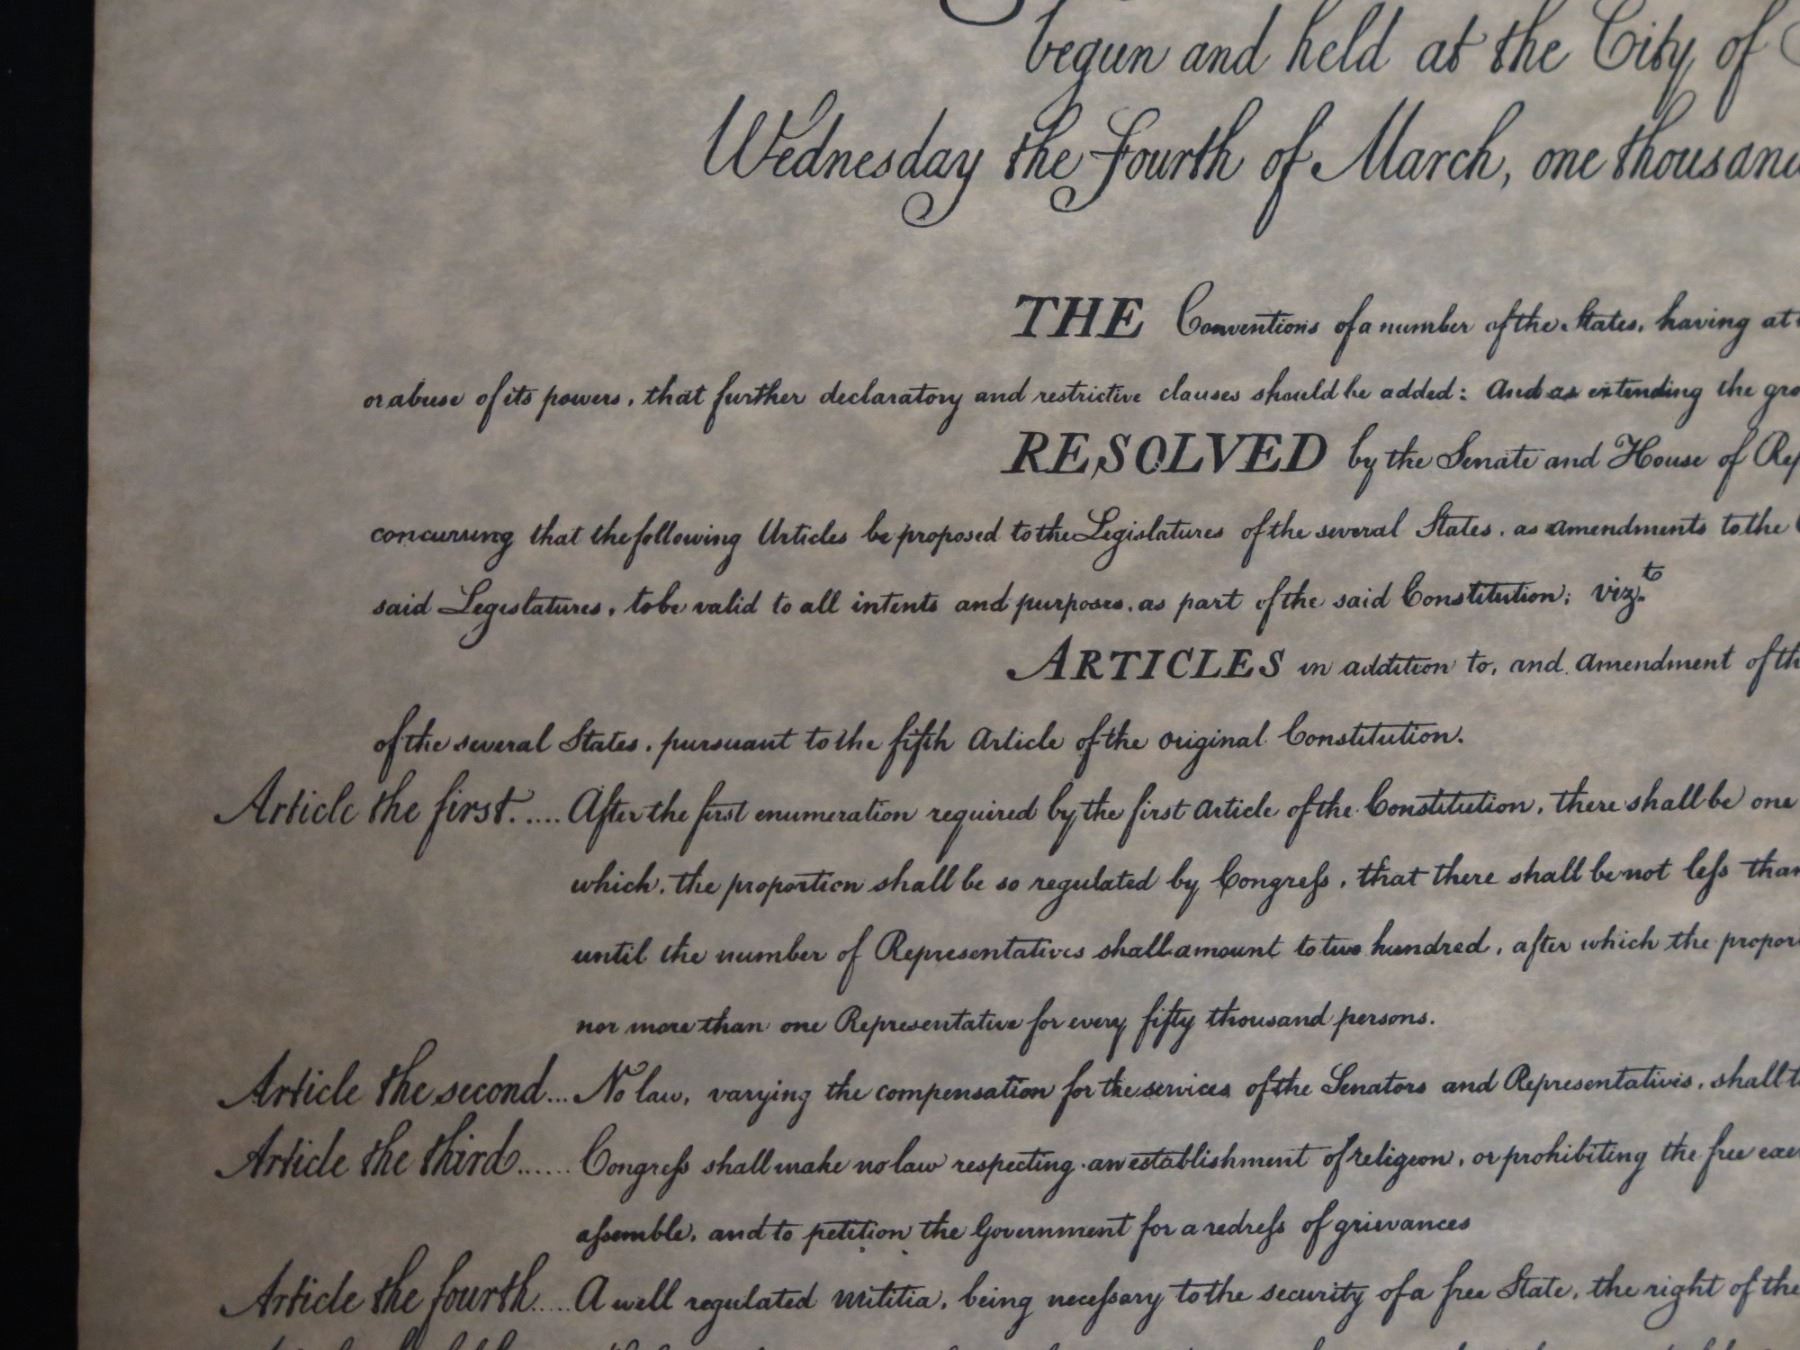 begun and held at the City of
Wednesday the Fourth of March, one thousand
THE Conventions of a number of the States, having at
or abuse of its powers, that further declaratory and restrictive clauses should be added: And as extending the gro
RESOLVED by the Senate and House of Rep
concurring that the following Articles be proposed to the Legislatures of the several States, as amendments to the
said Legislatures, to be valid to all intents and purposes, as part of the said Constitution; vizt.
ARTICLES in addition to, and Amendment of th
of the several States, pursuant to the fifth Article of the original Constitution.
Article the first..... After the first enumeration required by the first Article of the Constitution, there shall be one
which, the proportion shall be so regulated by Congreſs, that there shall be not leſs than
until the number of Representatives shall amount to two hundred, after which the propor
nor more than one Representative for every fifty thousand persons.
Article the second... No law, varying the compensation for the services of the Senators and Representatives, shall t
Article the third...... Congreſs shall make no law respecting an establishment of religion, or prohibiting the free exer
aſsemble, and to petition the Government for a redreſs of grievances
Article the fourth..... A well regulated militia, being neceſsary to the security of a free State, the right of the